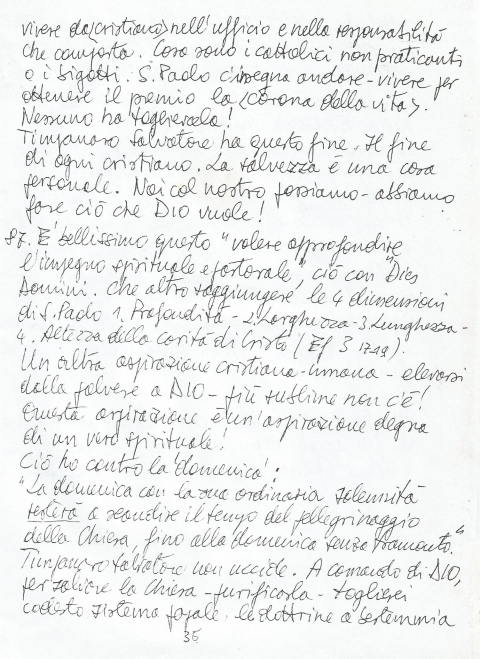 vivere da <cristiano> nell'ufficio e nella responsabilità
che comporta. Cosa sono i cattolici non praticanti
o i bigotti. S. Paolo c'insegna andare - vivere per
ottenere il premio la <Corona della vita>.
Nessuno ha togliercela!
Timpanaro Salvatore ha questo fine. Il fine
di ogni cristiano. La salvezza è una cosa
personale. Noi col nostro possiamo - abbiamo
fare ciò che DIO vuole!
87. E' bellissimo questo "volere approfondire
l'impegno spirituale e pastorale", ciò con "Dies
Domini. Che altro raggiungere le 4 dimensioni
di S. Paolo 1. Profondità - 2. Larghezza - 3. Lunghezza -
4. Altezza della carità di Cristo (Ef 3 17-19).
Un'altra aspirazione cristiana - umana - elevarsi
dalla polvere a DIO - più sublime non c'è!
Questa aspirazione è un'aspirazione degna
di un vero spirituale!
Ciò ho contro la 'domenica':
"La domenica con la sua ordinaria solennità
resterà a scandire il tempo del pellegrinaggio
della Chiesa, fino alla domenica senza tramonto."
Timpanaro Salvatore non uccide. A comando di DIO,
per salvare la Chiesa - purificarla - toglierei
codesto sistema papale, le dottrine a bestemmia
35